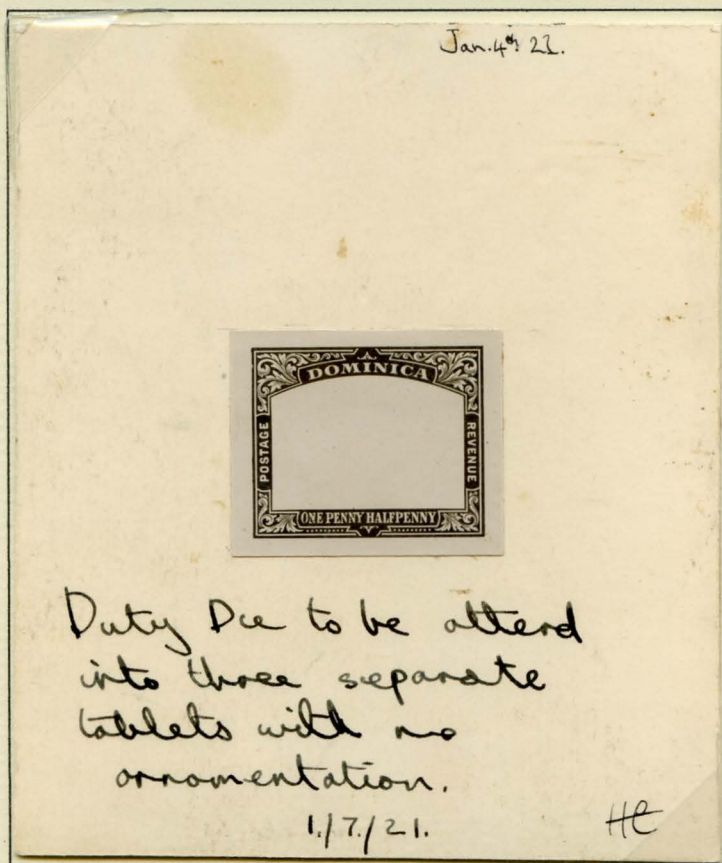 Jan. 4th 21.
DOMINICA
POSTAGE
REVENUE
ONE PENNY HALFPENNY
Duty Die to be altered
into three separate
tablets with no
ornamentation.
1./7./21.
HC